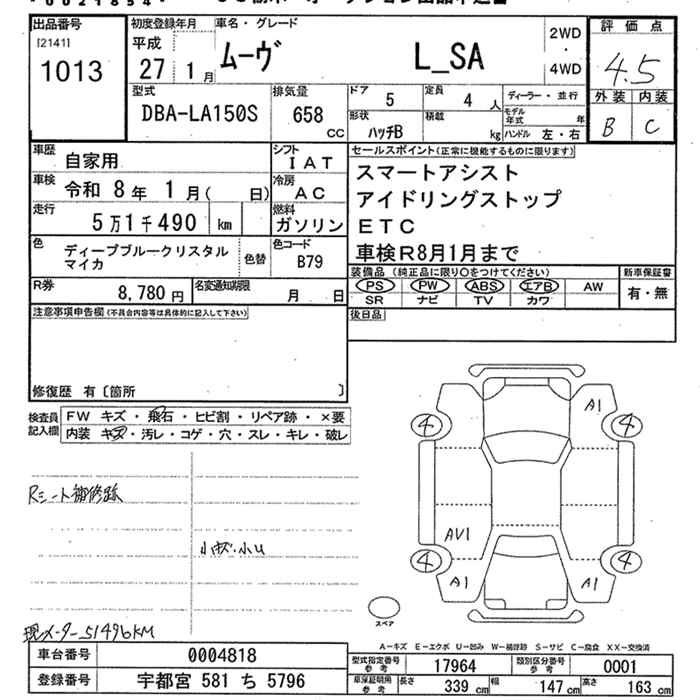 出品番号
[2141]
1013
初度登録年月
平成
27 1 月
車名・グレード
ムーヴ L_SA
2WD
・
4WD
評価点
4.5
外装 内装
B C
型式
DBA-LA150S
排気量
658
cc
ドア 5
定員 4 人
ディーラー・並行
形状 ハッチB
積載 kg
モデル年式 年
ハンドル 左・右
車歴 自家用
シフト
IAT
車検 令和 8年 1月( 日)
冷房
AC
走行 5万1千490 km
燃料
ガソリン
色 ディープブルークリスタル
マイカ
色替
色コード
B79
R券 8,780 円
名変通知期限 月 日
セールスポイント(正常に機能するものに限ります)
スマートアシスト
アイドリングストップ
ETC
車検R8月1月まで
装備品 (純正品に限り○をつけてください)
新車保証書
PS PW ABS エアB AW
有・無
SR ナビ TV カワ
後日品
注意事項申告欄(不具合内容等は具体的に記入して下さい)
修復歴 有〔箇所 〕
検査員
記入欄
FW キズ・飛石・ヒビ割・リペア跡・×要
内装 キズ・汚レ・コゲ・穴・スレ・キレ・破レ
Rシート補修跡
小キズ・小U
現メーター51496KM
4 4
A1
AV1
4 4
A1 A1
スペア
A-キズ E-エクボ U-凹み W-補修跡 S-サビ C-腐食 XX-交換済
車台番号 0004818
登録番号 宇都宮 581 ち 5796
型式指定番号
参考
17964
類別区分番号
参考
0001
車庫証明用
参考
長さ 339 cm
幅 147 cm
高さ 163 cm